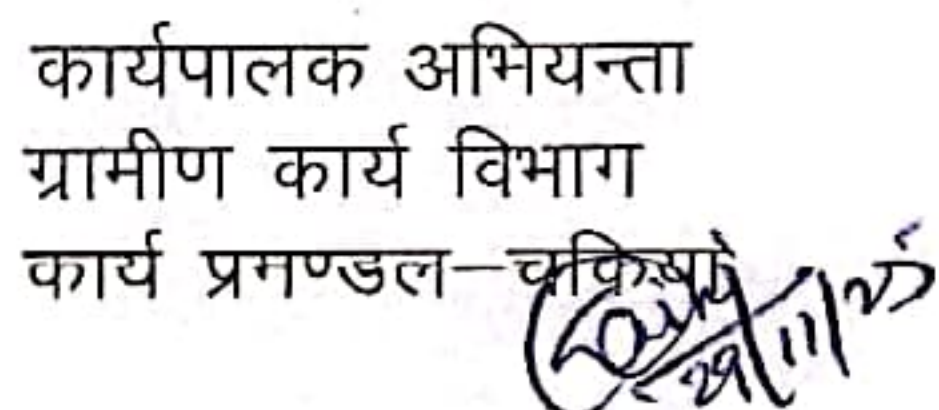 कार्यपालक अभियन्ता
ग्रामीण कार्य विभाग
कार्य प्रमण्डल–चकिया
29/11/